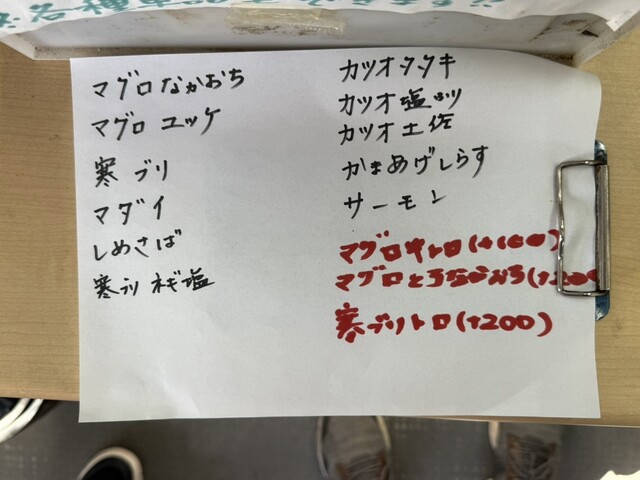 マグロなかおち
マグロ ユッケ
寒ブリ
マダイ
しめさば
寒ブリ ネギ塩
カツオタタキ
カツオ塩
カツオ土佐
かまあげしらす
サーモン
マグロ中トロ(+100)
マグロとろなかおち(+200
寒ブリトロ(+200)